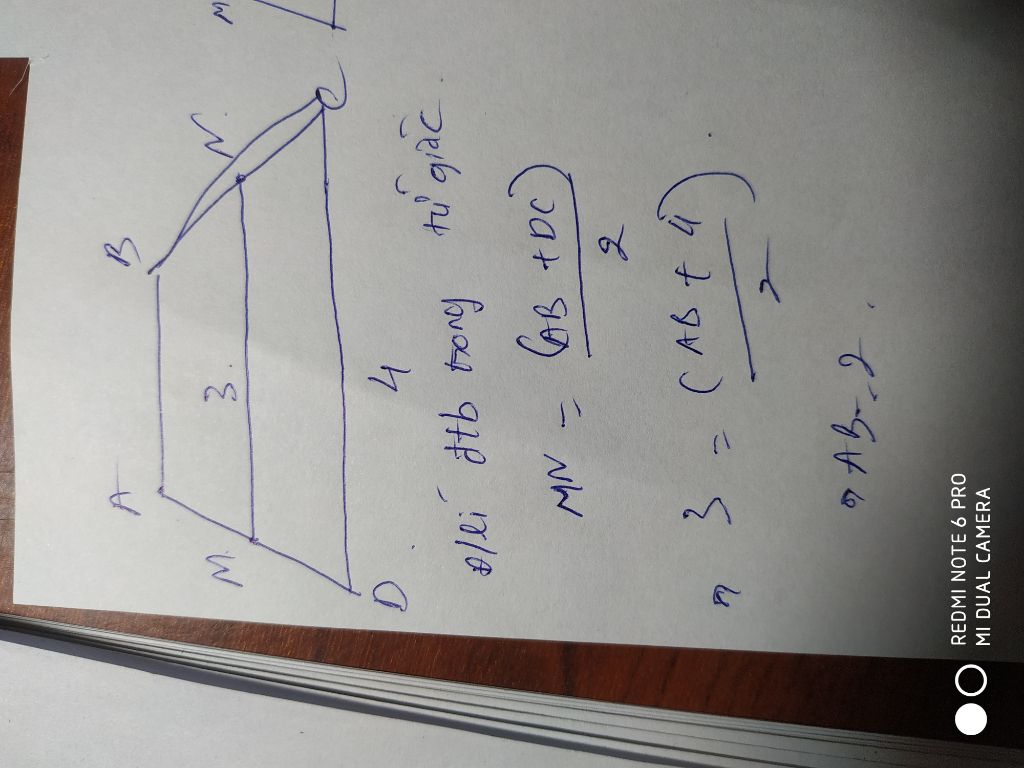 A B
M 3. N
D C
4
Đ/lí đtb trong tứ giác.
MN = (AB + DC)
2
⇒ 3 = (AB + 4)
2
⇒ AB = 2.
M
REDMI NOTE 6 PRO
MI DUAL CAMERA